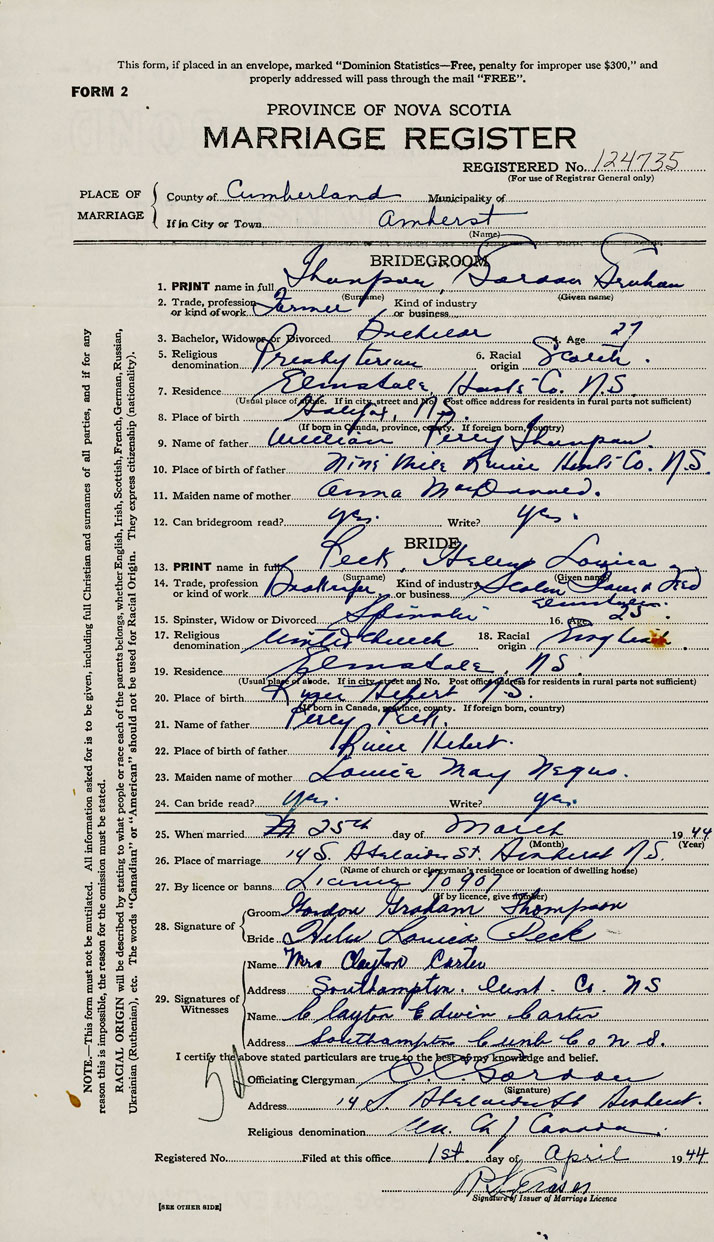 This form, if placed in an envelope, marked "Dominion Statistics—Free, penalty for improper use $300," and
properly addressed will pass through the mail "FREE".
FORM 2
PROVINCE OF NOVA SCOTIA
MARRIAGE REGISTER
REGISTERED No. 124735
(For use of Registrar General only)
PLACE OF MARRIAGE
County of Cumberland Municipality of
If in City or Town Amherst
(Name)
BRIDEGROOM
1. PRINT name in full Thompson, Gordon Graham
(Surname) (Given name)
2. Trade, profession or kind of work Farmer Kind of industry or business
3. Bachelor, Widower or Divorced Bachelor 4. Age 27
5. Religious denomination Presbyterian 6. Racial origin Scotch.
7. Residence Elmsdale, Hants Co. N.S.
(Usual place of abode. If in city, street and No. Post office address for residents in rural parts not sufficient)
8. Place of birth Halifax, N.S.
(If born in Canada, province, county. If foreign born, country)
9. Name of father William Percy Thompson.
10. Place of birth of father Nine Mile River Hants Co. N.S.
11. Maiden name of mother Anna MacDonald.
12. Can bridegroom read? yes. Write? yes.
BRIDE
13. PRINT name in full Peck, Helen Louica
(Surname) (Given name)
14. Trade, profession or kind of work Bookkeeper Kind of industry or business
Elmsdale.
15. Spinster, Widow or Divorced Spinster 16. Age 25
17. Religious denomination United Church 18. Racial origin English.
19. Residence Elmsdale, N.S.
(Usual place of abode. If in city, street and No. Post office address for residents in rural parts not sufficient)
20. Place of birth River Hebert N.S.
(If born in Canada, province, county. If foreign born, country)
21. Name of father Percy Peck.
22. Place of birth of father River Hebert.
23. Maiden name of mother Louica May Negus.
24. Can bride read? yes. Write? yes.
25. When married 25th day of March 1944
(Month) (Year)
26. Place of marriage 14 S. Adelaide St. Amherst N.S.
(Name of church or clergyman's residence or location of dwelling house)
27. By licence or banns License 70907
(If by licence, give number)
28. Signature of
Groom Gordon Graham Thompson
Bride Helen Louica Peck
29. Signatures of Witnesses
Name Mrs Clayton Carter
Address Southampton, Cumb. Co. N S
Name Clayton Edwin Carter
Address Southampton Cumb Co N S.
I certify the above stated particulars are true to the best of my knowledge and belief.
Officiating Clergyman C. C. Gordon
(Signature)
Address 14 S. Adelaide St Amherst.
Religious denomination Un. Ch of Canada.
Registered No. Filed at this office 1st day of April 1944
Signature of Issuer of Marriage Licence
[SEE OTHER SIDE]
NOTE.—This form must not be mutilated. All information asked for is to be given, including full Christian and surnames of all parties, and if for any
reason this is impossible, the reason for the omission must be stated.
RACIAL ORIGIN will be described by stating to what people or race each of the parents belongs, whether English, Irish, Scottish, French, German, Russian,
Ukrainian (Ruthenian), etc. The words "Canadian" or "American" should not be used for Racial Origin. They express citizenship (nationality).